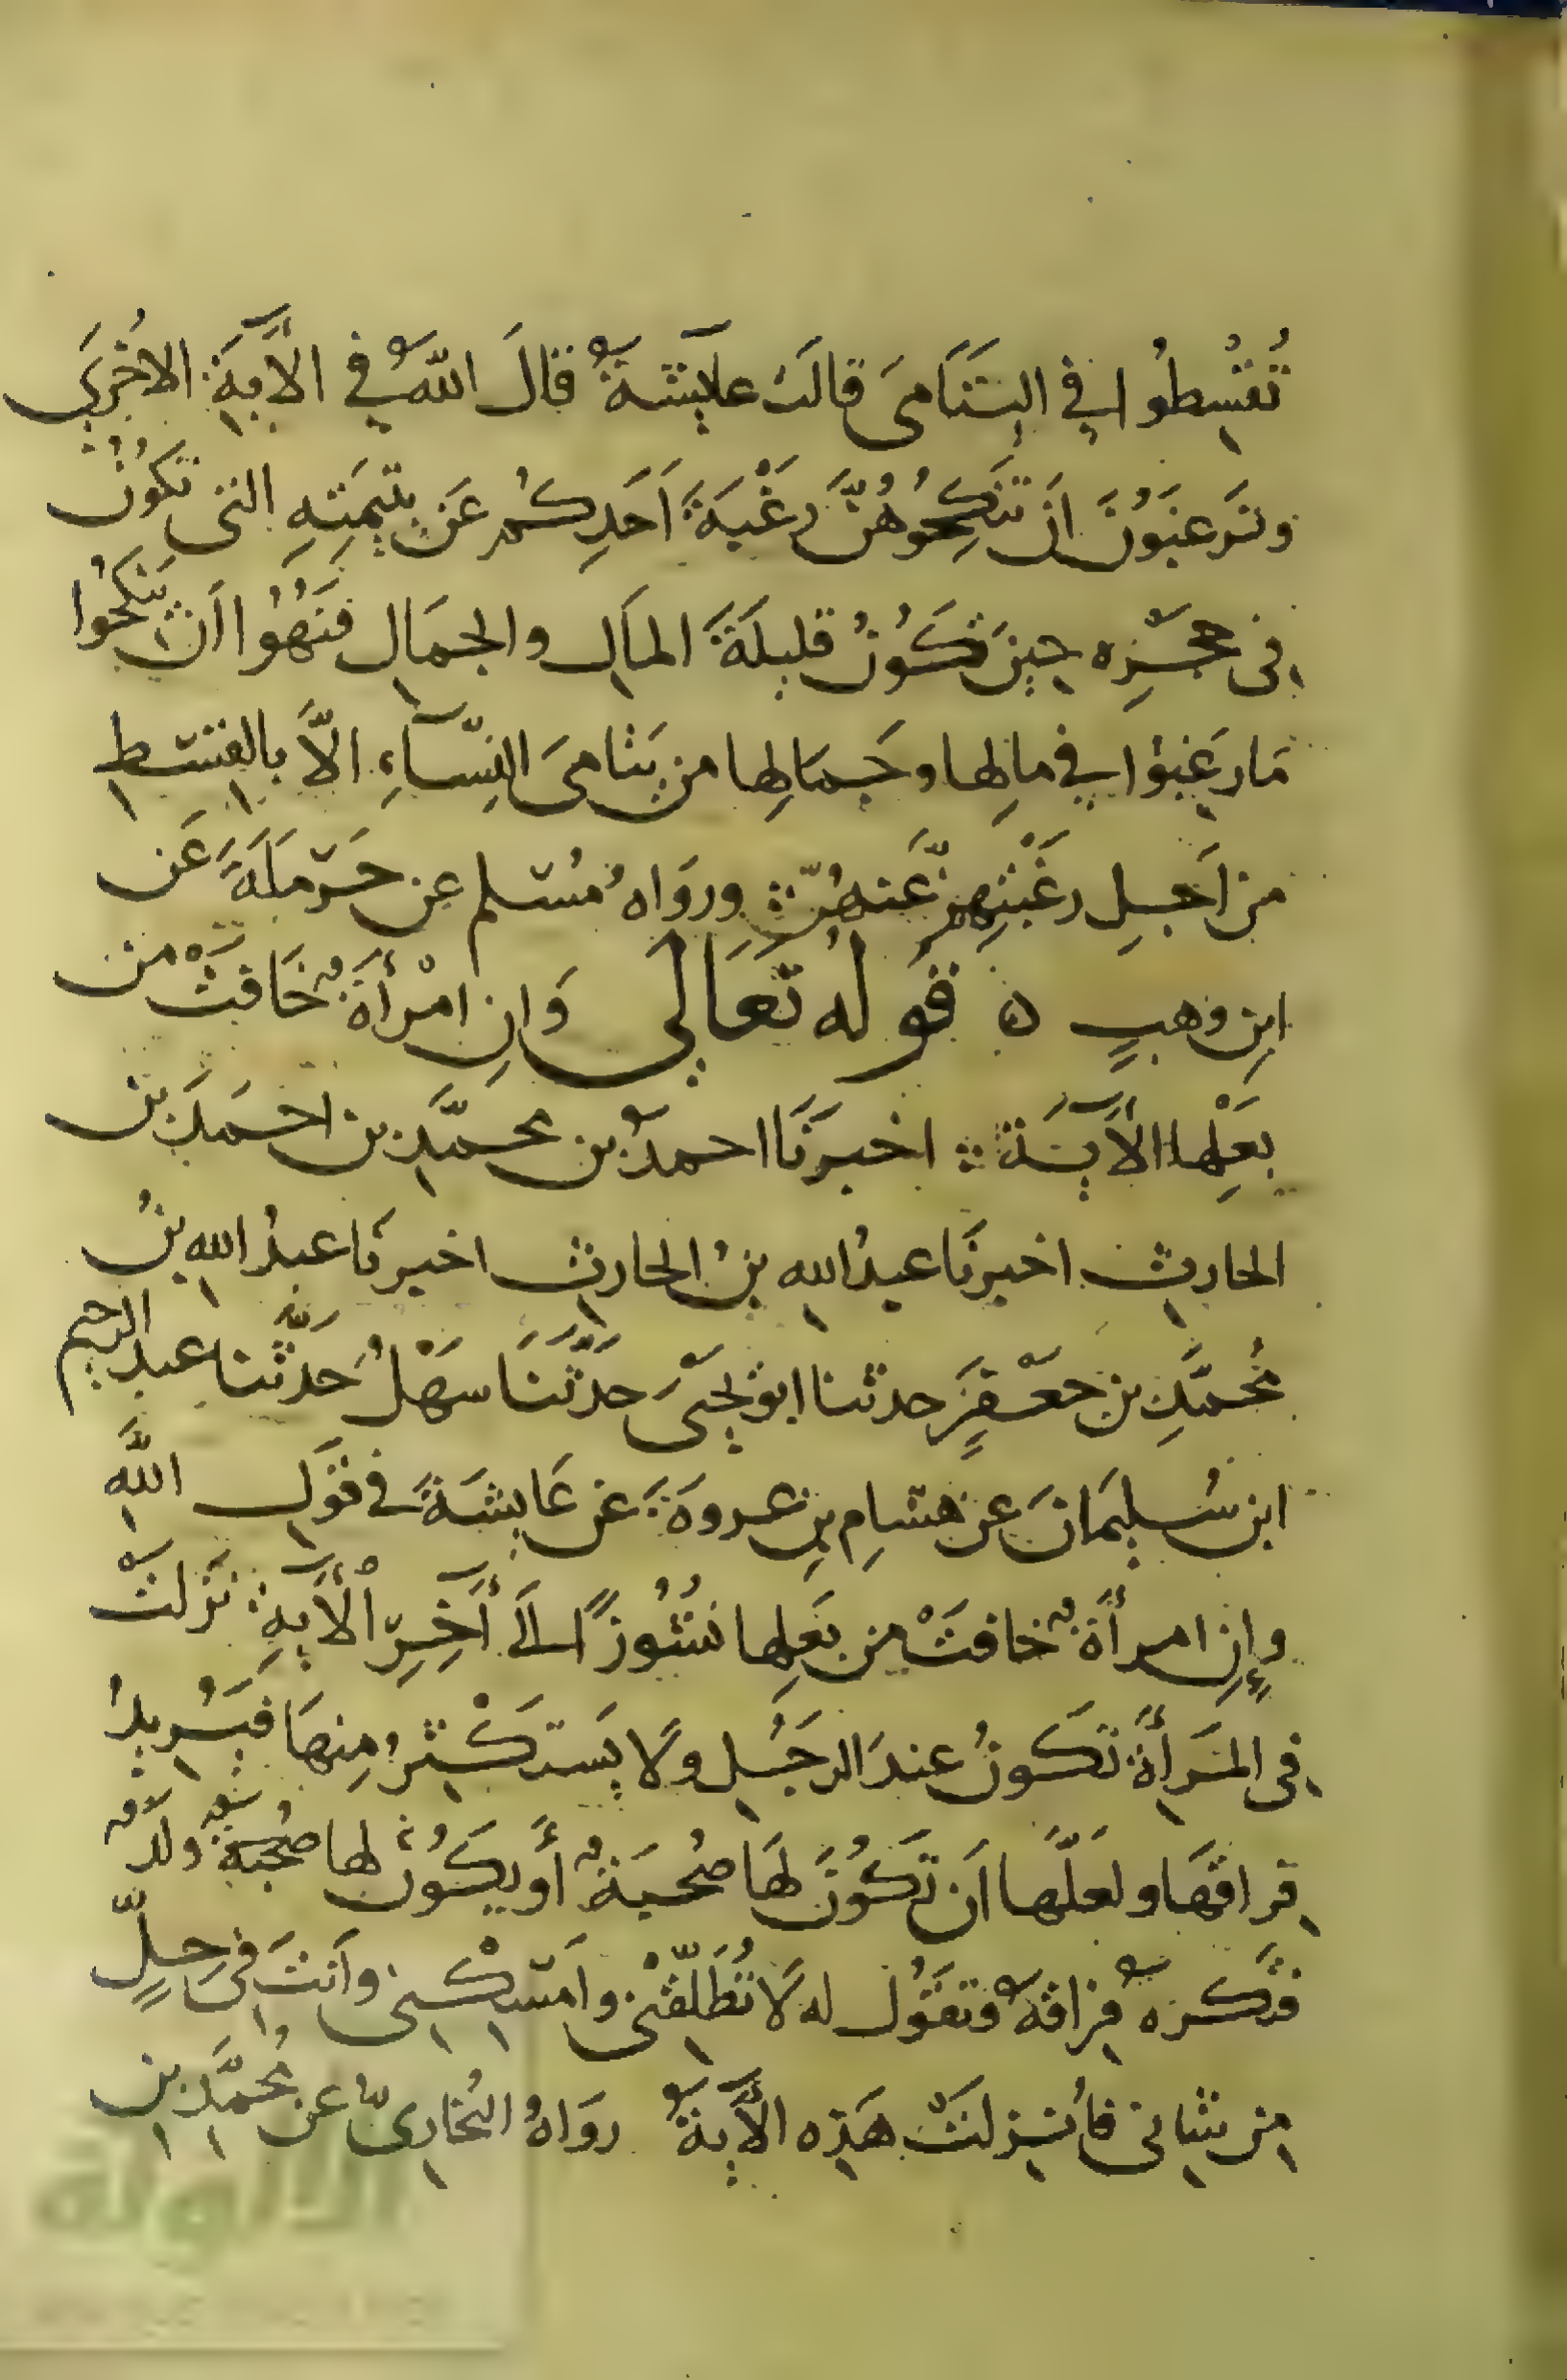 تُقْسِطُوا في اليَتَامىَ قالَت عايشةُ قالَ اللهُ في الآيَةِ الاخْرَى
وتَرغَبَوُنَ اَن تَنكِحُوُهُنَّ رَغْبَةَ اَحَدِكُم عَن يَتيمَتِهِ التى تكُونُ
فى حَجْرِه حِينَ تَكُونُ قليلَةَ المَالِ والجمَالِ فَنُهُوا اَن يَنكحُوا
مَا رَغِبُوا في مالِها وجَمَالِها من يَتَامىَ النِّسَآءِ الاَّ بالقِسْطِ
من اَجلِ رغْبَتِهِم عَنهُنَّ ورَوَاهُ مُسْلم عن حَرْمَلَةَ عَن
ابنِ وَهبٍ ه قوله تعَالى وَاِنِ امْرأَةٌ خَافتْ من
بَعْلِها الآيَة اخبرَنَا احمدُ بن محمَّدِ بن احمَدَ بن
الحارث اخبرنَا عبدُ اللهِ بنُ الحارث اخبرنَا عبدُ اللهِ بنُ
مُحمَّدِ بنِ جَعْفرٍ حدثنا ابو يحيىَ حَدَّثَنَا سَهْلُ حَدثَّنا عبد الرحيم
ابن سُليمَانَ عن هشامِ بنِ عروةَ عن عَايشَةَ في قَوْلِ اللَّهِ
وإِنِ امرأَةٌ خافتْ من بَعلِها نُشُوزًا الَى أَخِرِ اْلآيةِ نَزَلتْ
فى المَرأَةِ تكونُ عندَ الرجُلِ ولَا يَستكْثِرُ مِنهَا فَيُرِيدُ
فِراقَهَا ولعَلَّها اَن تكُونَ لهَا صُحبَةٌ أَو يكُونُ لها صُحبَةٌ ولَدٌ
فتَكرَهُ فِراقَهُ وتقوُل له لَا تُطَلِّقْنى وامْسِكْنى وأنتَ فى حِلٍّ
مِن شانى فأُنزِلَتْ هَذِه الآيةُ روَاهُ البُخارِىّ عن مُحمَّدِ بن
الألوكة